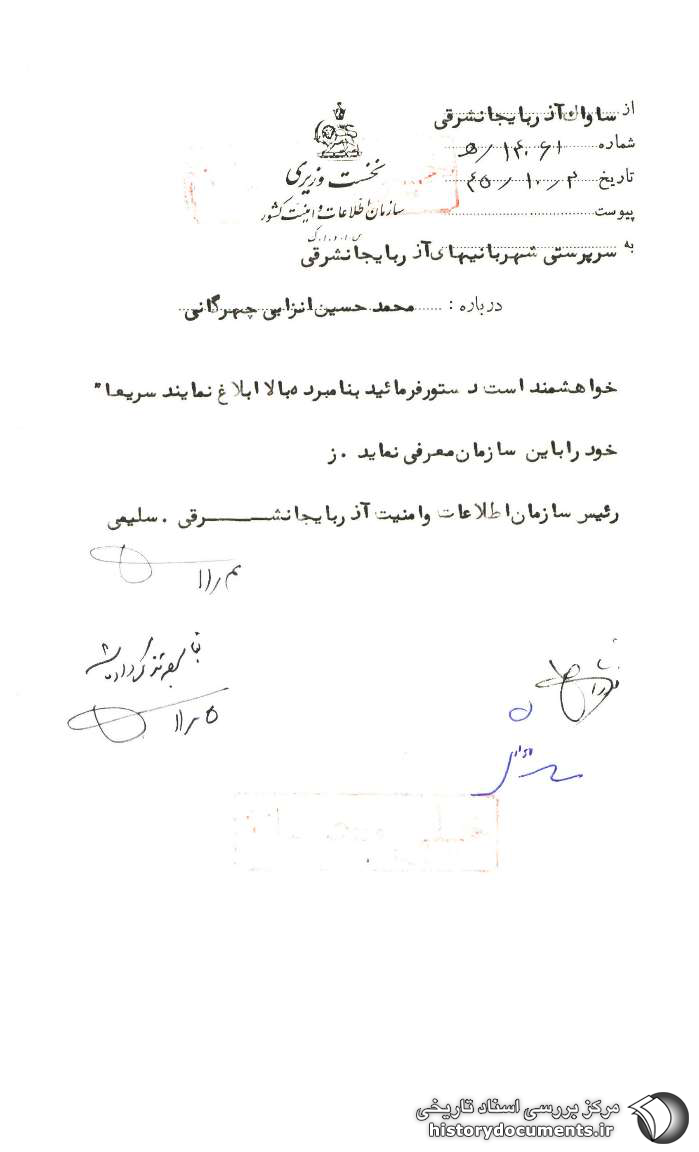 از ساواک آذربایجانشرقی
شماره ۵/۱۴۰۶۱
تاریخ ۴۵/۱۰/۲
پیوست
نخست وزیری
سازمان اطلاعات و امنیت کشور
س.ا.و.ا.ک
به سرپرستی شهربانیهای آذربایجانشرقی
درباره : محمد حسین انزابی چهرگانی
خواهشمند است دستور فرمائید بنامبرده بالا ابلاغ نمایند سریعا"
خود را باین سازمان معرفی نماید . ز
رئیس سازمان اطلاعات وامنیت آذربایجانشـــرقی . سلیمی
مرکز بررسی اسناد تاریخی
historydocuments.ir